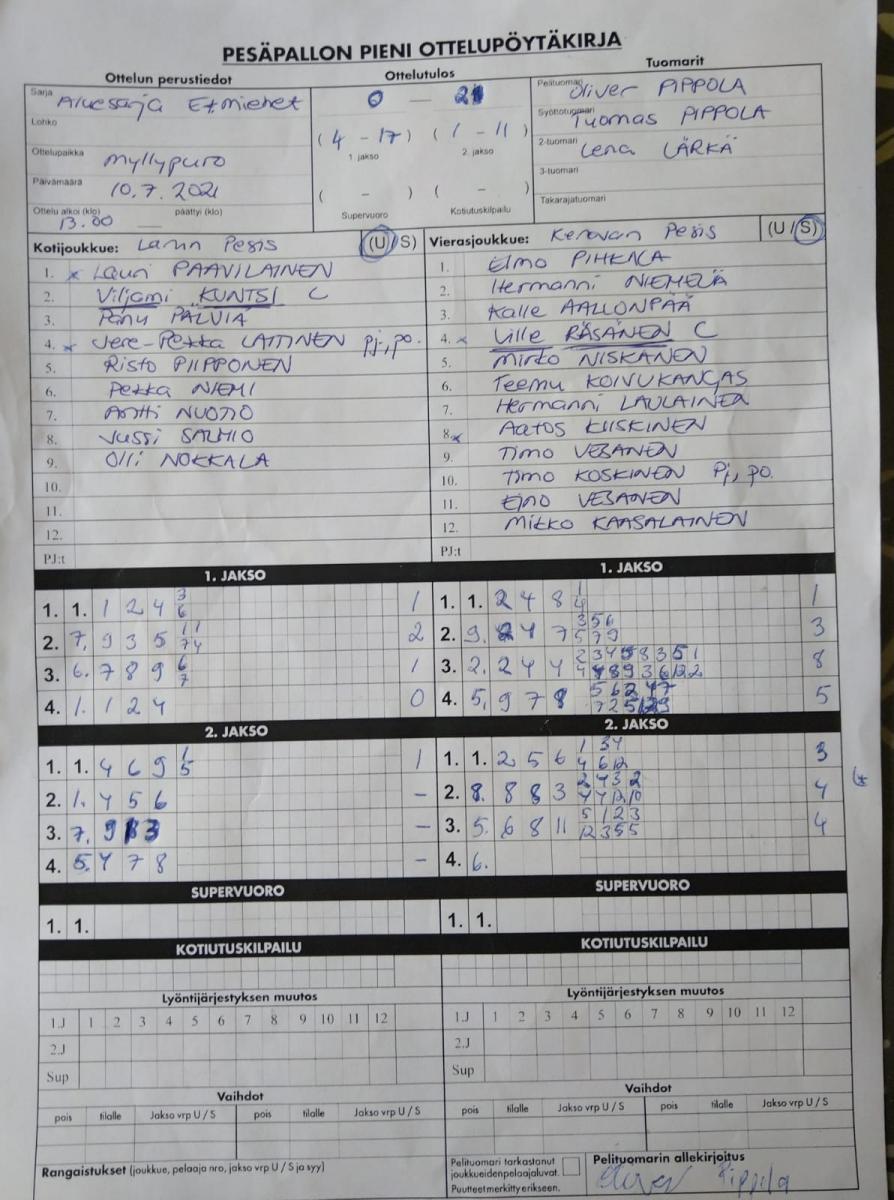 PESÄPALLON PIENI OTTELUPÖYTÄKIRJA
Ottelun perustiedot
Sarja Aluesarja Et.miehet
Lohko
Ottelupaikka Myllypuro
Päivämäärä 10.7.2021
Ottelu alkoi (klo) 13.00 päättyi (klo)
Ottelutulos
0 — 2
(4 - 17) (1 - 11)
1. jakso 2. jakso
( - ) ( - )
Supervuoro Kotiutuskilpailu
Tuomarit
Pelituomari Oliver PIPPOLA
Syöttötuomari Tuomas PIPPOLA
2-tuomari Lena LÄRKÄ
3-tuomari
Takarajatuomari
Kotijoukkue: Lamin Pesis (U/S)
1. x Lauri PAAVILAINEN
2. Viljami KUNTSI C
3. Panu PALVIA
4. x Jere-Pekka LAITINEN pj, po.
5. Risto PIIPPONEN
6. Pekka NIEMI
7. Antti NUOTIO
8. Jussi SALMIO
9. Olli NOKKALA
10.
11.
12.
PJ:t
Vierasjoukkue: Keravan Pesis (U/S)
1. Elmo PIHKNA
2. Hermanni NIEMELÄ
3. Kalle AALLONPÄÄ
4. x Ville RÄSÄNEN C
5. Mirko NISKANEN
6. Teemu KOIVUKANGAS
7. Hermanni LAULAINEN
8. x Aatos KIISKINEN
9. Timo VESANEN
10. Timo KOSKINEN Pj, po.
11. Eino VESANEN
12. Mikko KAASALAINEN
PJ:t
1. JAKSO
1. 1. 1 2 4 3 6 1
2. 7. 9 3 5 1 1 7 4 2
3. 6. 7 8 9 6 7 1
4. 1. 1 2 4 0
2. JAKSO
1. 1. 4 6 9 1 5 1
2. 1. 4 5 6 -
3. 7. 9 3 -
4. 5. 4 7 8 -
SUPERVUORO
1. 1.
KOTIUTUSKILPAILU
Lyöntijärjestyksen muutos
1.J 1 2 3 4 5 6 7 8 9 10 11 12
2.J
Sup
Vaihdot
pois tilalle Jakso vrp U / S pois tilalle Jakso vrp U / S
Rangaistukset (joukkue, pelaaja nro, jakso vrp U / S ja syy)
1. JAKSO
1. 1. 2 4 8 1 4 1
2. 9. 2 4 7 3 5 6 5 7 9 3
3. 2. 2 4 4 8
4. 5. 9 7 8 5
2. JAKSO
1. 1. 2 5 6 1 3 4 4 6 12 3
2. 8. 8 8 3 2 4 3 2 4 4 12 10 4
3. 5. 6 8 11 5 1 2 3 12 3 5 5 4
4. 6.
SUPERVUORO
1. 1.
KOTIUTUSKILPAILU
Lyöntijärjestyksen muutos
1.J 1 2 3 4 5 6 7 8 9 10 11 12
2.J
Sup
Vaihdot
pois tilalle Jakso vrp U / S pois tilalle Jakso vrp U / S
Pelituomari tarkastanut
joukkueidenpelaajaluvat.
Puutteet merkitty erikseen.
Pelituomarin allekirjoitus
Oliver Pippola